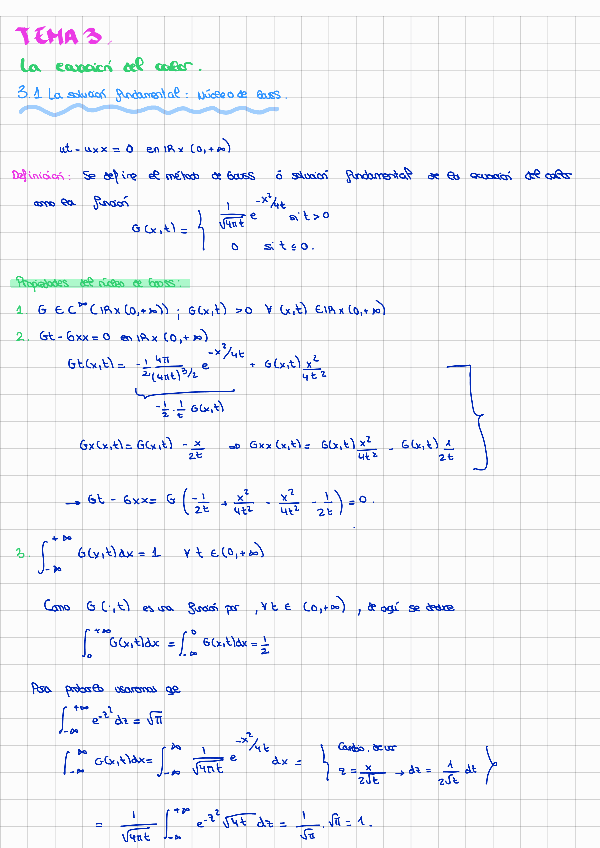 TEMA 3.
La ecuación del calor.
3.1 La solución fundamental: Núcleo de Gauss.
ut - uxx = 0 en ℝ x (0,+∞)
Definición: Se define el método de Gauss ó solución fundamental de la ecuación del calor
como la función
G(x,t) = { 1/√4πt e^(-x²/4t) si t > 0
0 si t ≤ 0.
Propiedades del núcleo de Gauss:
1. G ∈ C^∞ (ℝ x (0,+∞)) ; G(x,t) > 0 ∀ (x,t) ∈ ℝ x (0,+∞)
2. Gt - Gxx = 0 en ℝ x (0,+∞)
Gt(x,t) = -1/2 4π/(4πt)^3/2 e^(-x²/4t) + G(x,t) x²/4t²
-1/2 · 1/t G(x,t)
Gx(x,t) = G(x,t) - x/2t ⇒ Gxx(x,t) = G(x,t) x²/4t² - G(x,t) 1/2t
→ Gt - Gxx = G (-1/2t + x²/4t² - x²/4t² - 1/2t) = 0.
3. ∫_-∞^+∞ G(x,t)dx = 1 ∀ t ∈ (0,+∞)
Como G(·,t) es una función par, ∀t ∈ (0,+∞), de aquí se deduce
∫_0^+∞ G(x,t)dx = ∫_-∞^0 G(x,t)dx = 1/2
Para probarlo usaremos que
∫_-∞^+∞ e^-z² dz = √π
∫_-∞^∞ G(x,t)dx = ∫_-∞^∞ 1/√4πt e^(-x²/4t) dx = { Cambio de var
z = x/2√t → dz = 1/2√t dt }
= 1/√4πt ∫_-∞^+∞ e^-z² √4t dz = 1/√π · √π = 1.